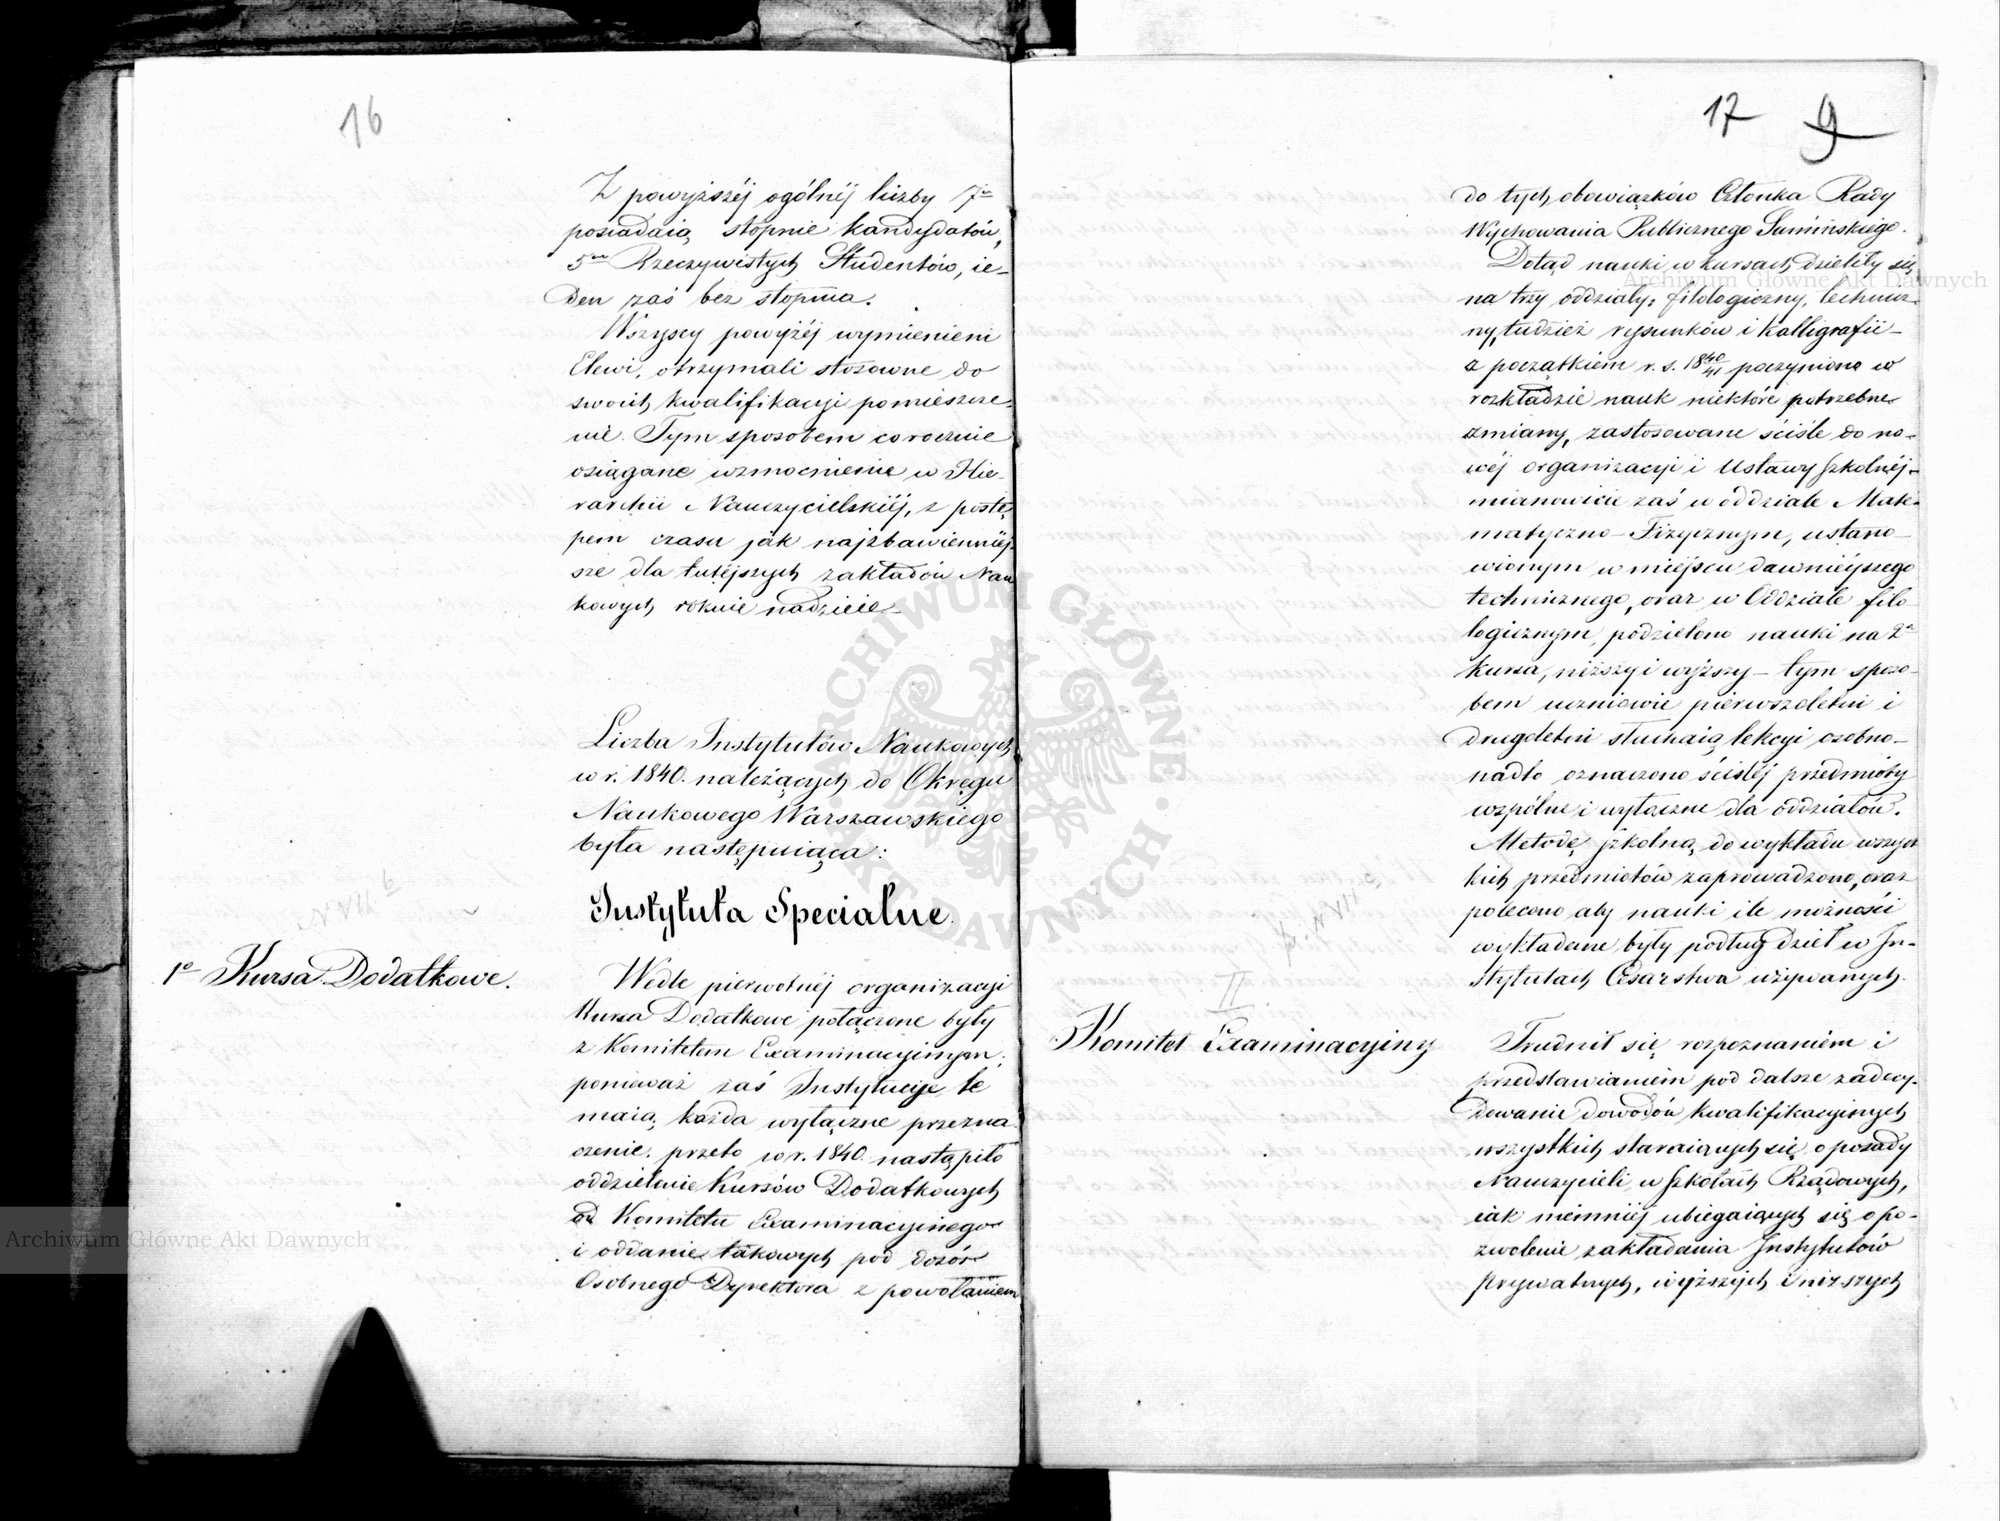 16
Z powyższéj ogólnéj liczby 7u
posiadaią stopnie kandydatów,
5iu Rzeczywistych Studentów, ie-
den zaś bez stopnia.
Wszyscy powyżéj wymienieni
Elewi, otrzymali stosowne do
swoich kwalifikacyi pomieszcze-
nie. Tym sposobem corocznie
osiągane wzmocnienie w Hie-
rarchii Nauczycielskiéj, z postę-
pem czasu jak najzbawienniéj-
sze dla tutéjszych zakładów Nau
kowych rokuie nadzieie
Liczba Instytutów Naukowych
w r. 1840. należących do Okręgu
Naukowego Warszawskiego
była następuiąca:
Instytuta Specialne.
1e Kursa Dodatkowe.
Wedle pierwotnéj organizacyi
Kursa Dodatkowe połączone były
z Komitetem Examinacyinym;
ponieważ zaś Instytucye te
maią każda wyłączne przezna-
czenie, przeto w r. 1840. nastąpiło
oddzielenie Kursów Dodatkowych
od Komitetu Examinacyinego
i oddanie takowych pod dozór
Osobnego Dyrektora z powołaniem
17 9
do tych obowiązków Członka Rady
Wychowania Publicznego Sumińskiego.
Dotąd nauki w kursach dzieliły się
na trzy oddziały: filologiczny, technicz-
ny, tudzież rysunków i kalligrafii-
z początkiem r. s. 1840/41 poczyniono w
rozkładzie nauk niektóre potrzebne
zmiany, zastosowane ściśle do no-
wéj organizacyi i Ustawy szkolnéj-
mianowicie zaś w oddziale Mate-
matyczno-Fizycznym, ustano-
wionym w miéjscu dawniéjszego
technicznego, oraz w Oddziale filo-
logicznym, podzielono nauki na 2a
kursa, niższy i wyższy - tym sposo-
bem uczniowie pierwszoletni i
drugoletni słuchaią lekcyi osobno-
nadto oznaczono ściśléj przedmioty
wspólne i wyłączne dla oddziałów.
Metodę szkolną do wykładu wszyst
kich przedmiotów zaprowadzono, oraz
polecono aby nauki ile możności
wykładane były podług dzieł w In-
stytutach Cesarstwa używanych.
II
Komitet Examinacyiny
Trudnił się rozpoznaniem i
przedstawianiem pod dalsze zadecy-
dowanie dowodów kwalifikacyinych
wszystkich staraiących się o posady
Nauczycieli w Szkołach Rządowych,
iak niemniéj ubiegaiących się o po-
zwolenie zakładania Instytutów
prywatnych, wyższych i niższych
ARCHIWUM GŁÓWNE AKT DAWNYCH
Archiwum Główne Akt Dawnych
Archiwum Główne Akt Dawnych